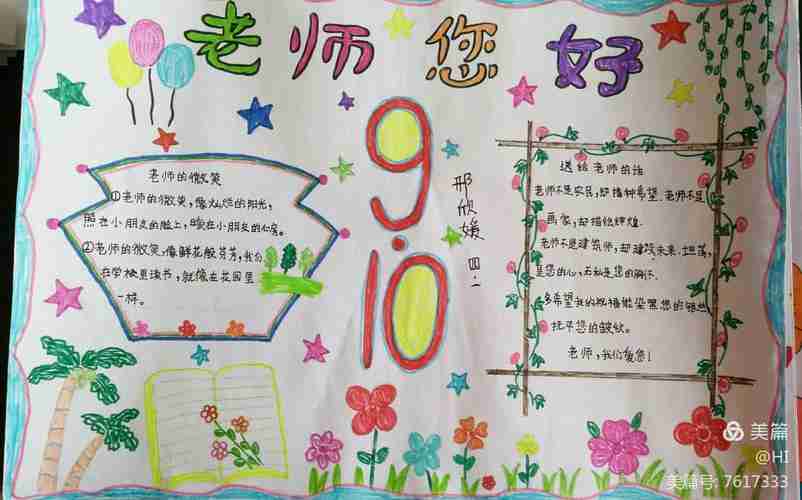 老师您好
老师的微笑
①老师的微笑,像灿烂的阳光,
照在小朋友的脸上,暖在小朋友的心房。
②老师的微笑,像鲜花般芬芳,我们
在学校里读书,就像在花园里
一样。
9.10
邢欣媛 四.二
送给老师的话
老师不是农民,却播种希望.老师不是
画家,却描绘辉煌.
老师不是建筑师,却建设未来.坦荡
是您的心,无私是您的胸怀.
多希望我的祝福能染黑您的
抚平您的皱纹.
老师,我们爱您!
美篇
@HI
美篇号: 7617333